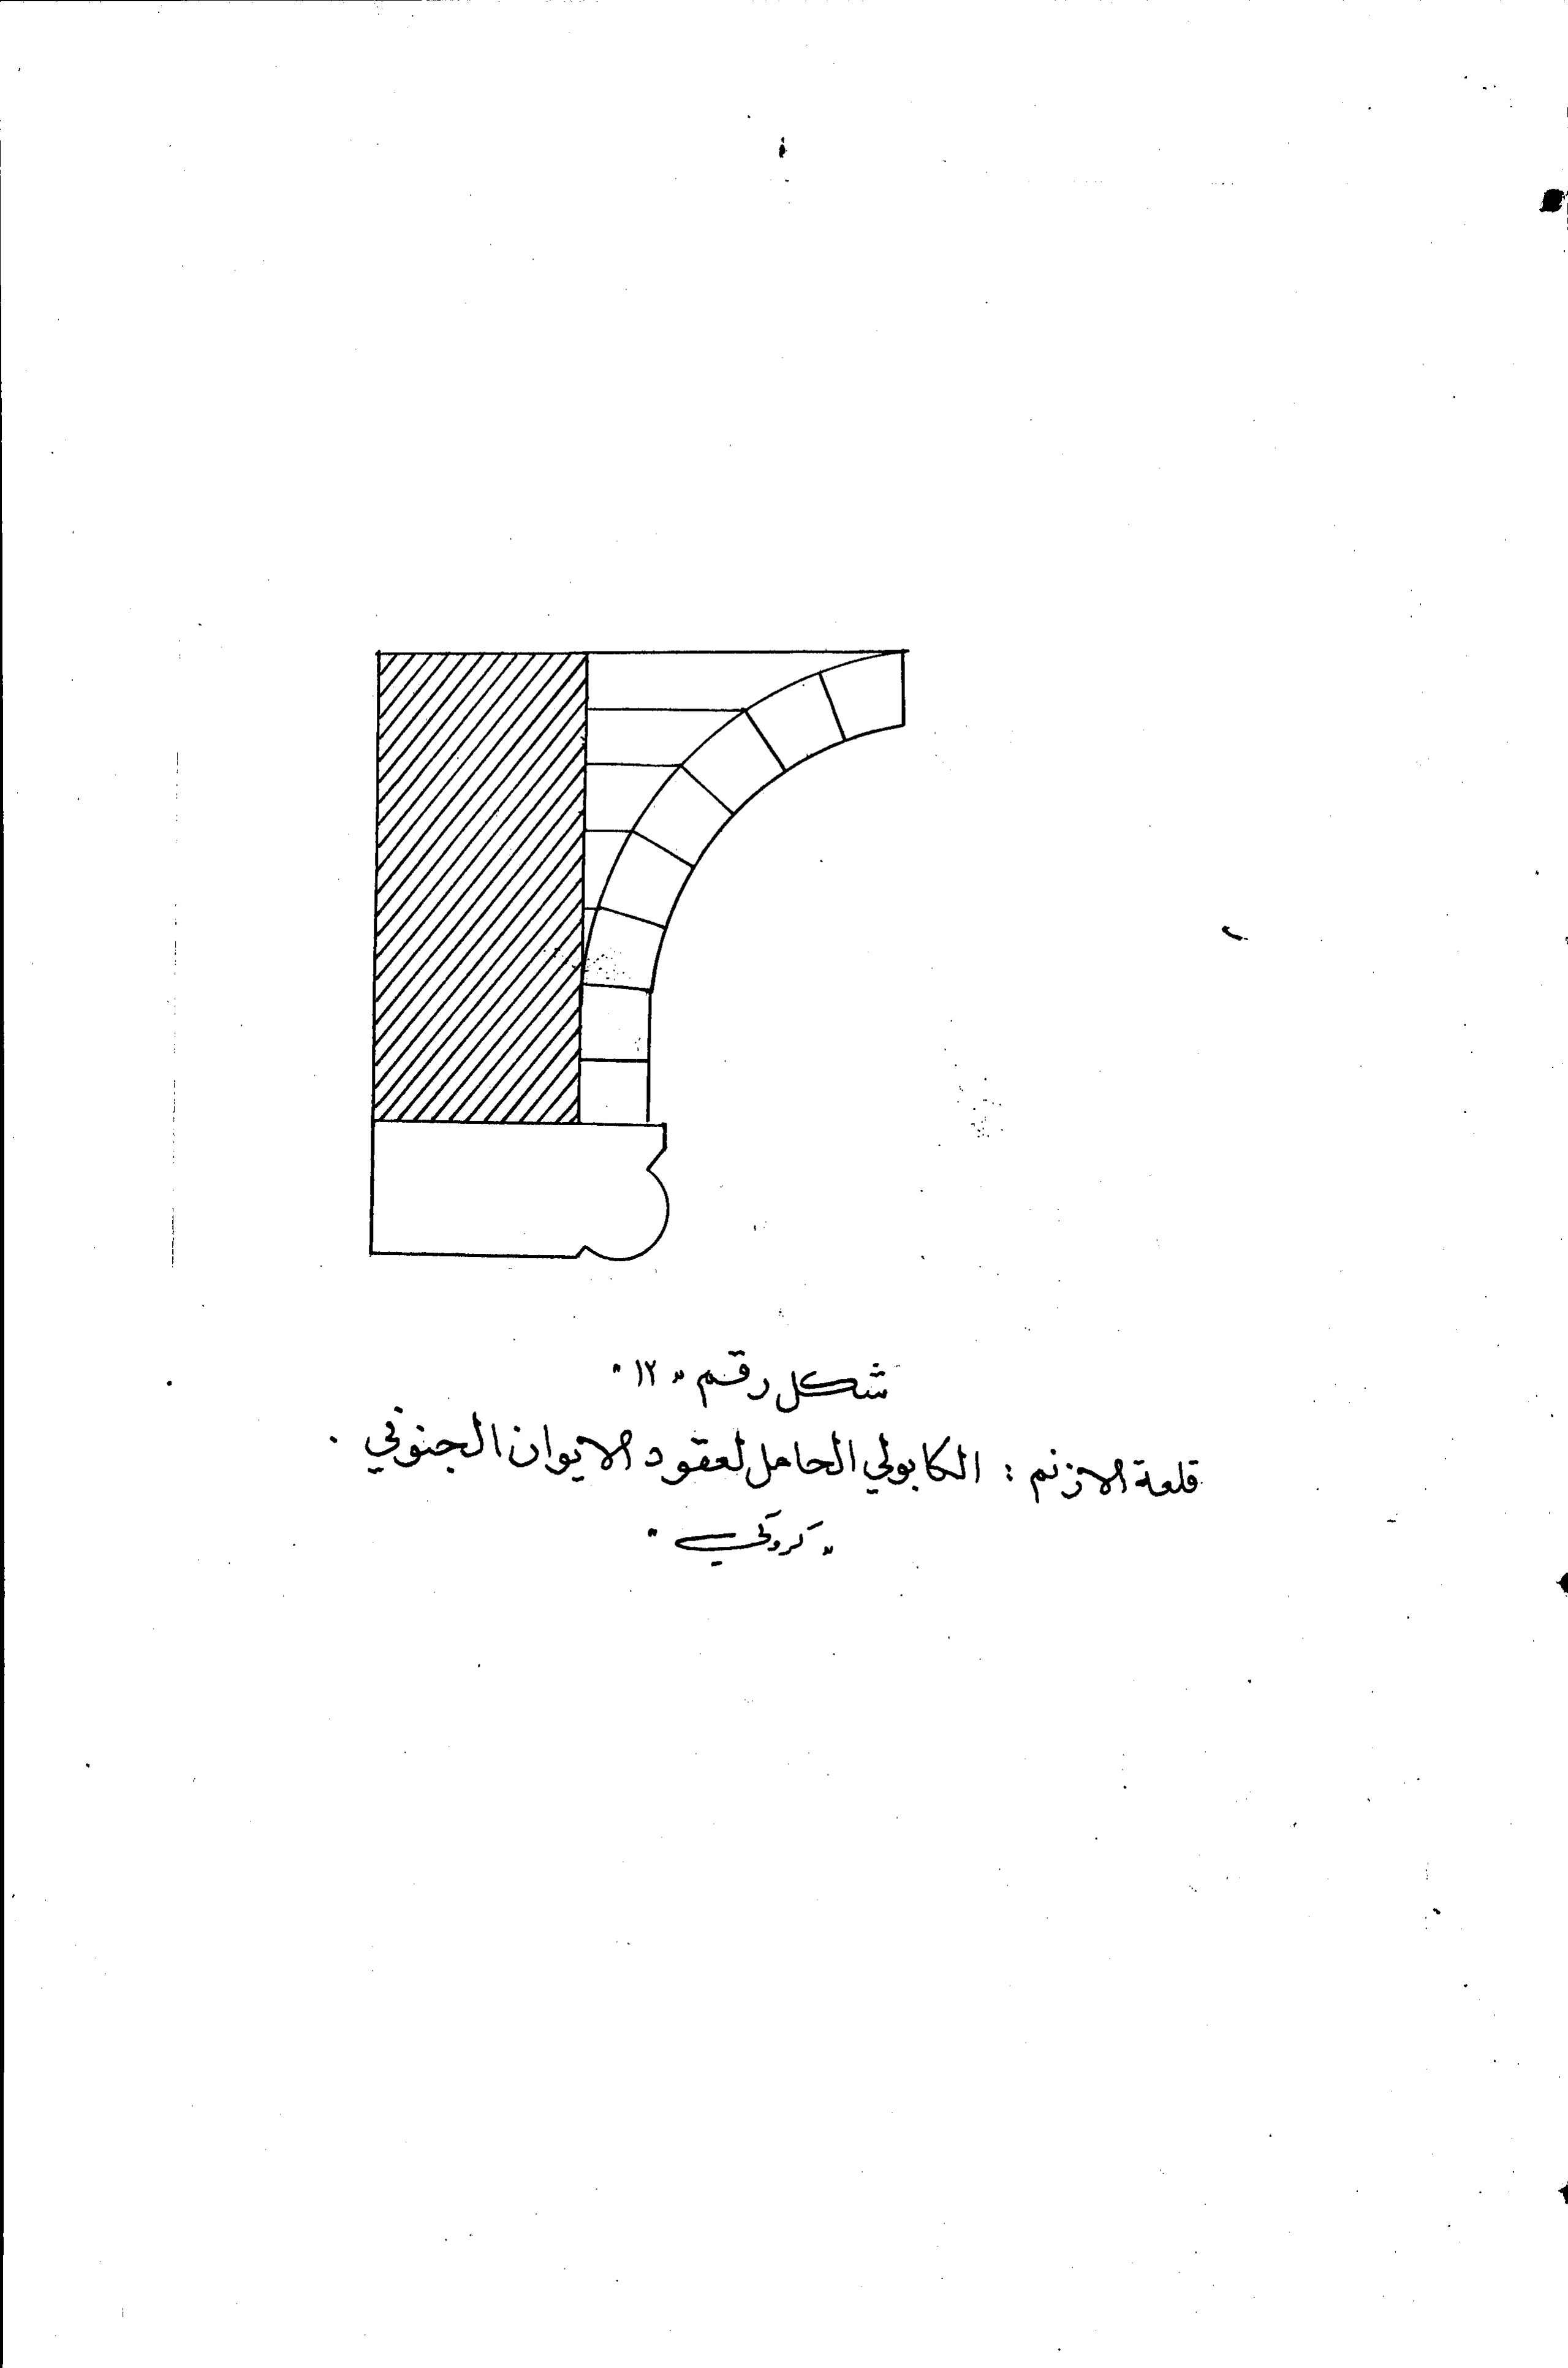 شكل رقم "١٢"
قلعة الازنم : الكابولي الحامل لعقود الايوان الجنوبي .
"كروكي"